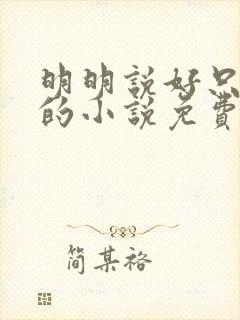 明明說好只
的小說免費
简某裕